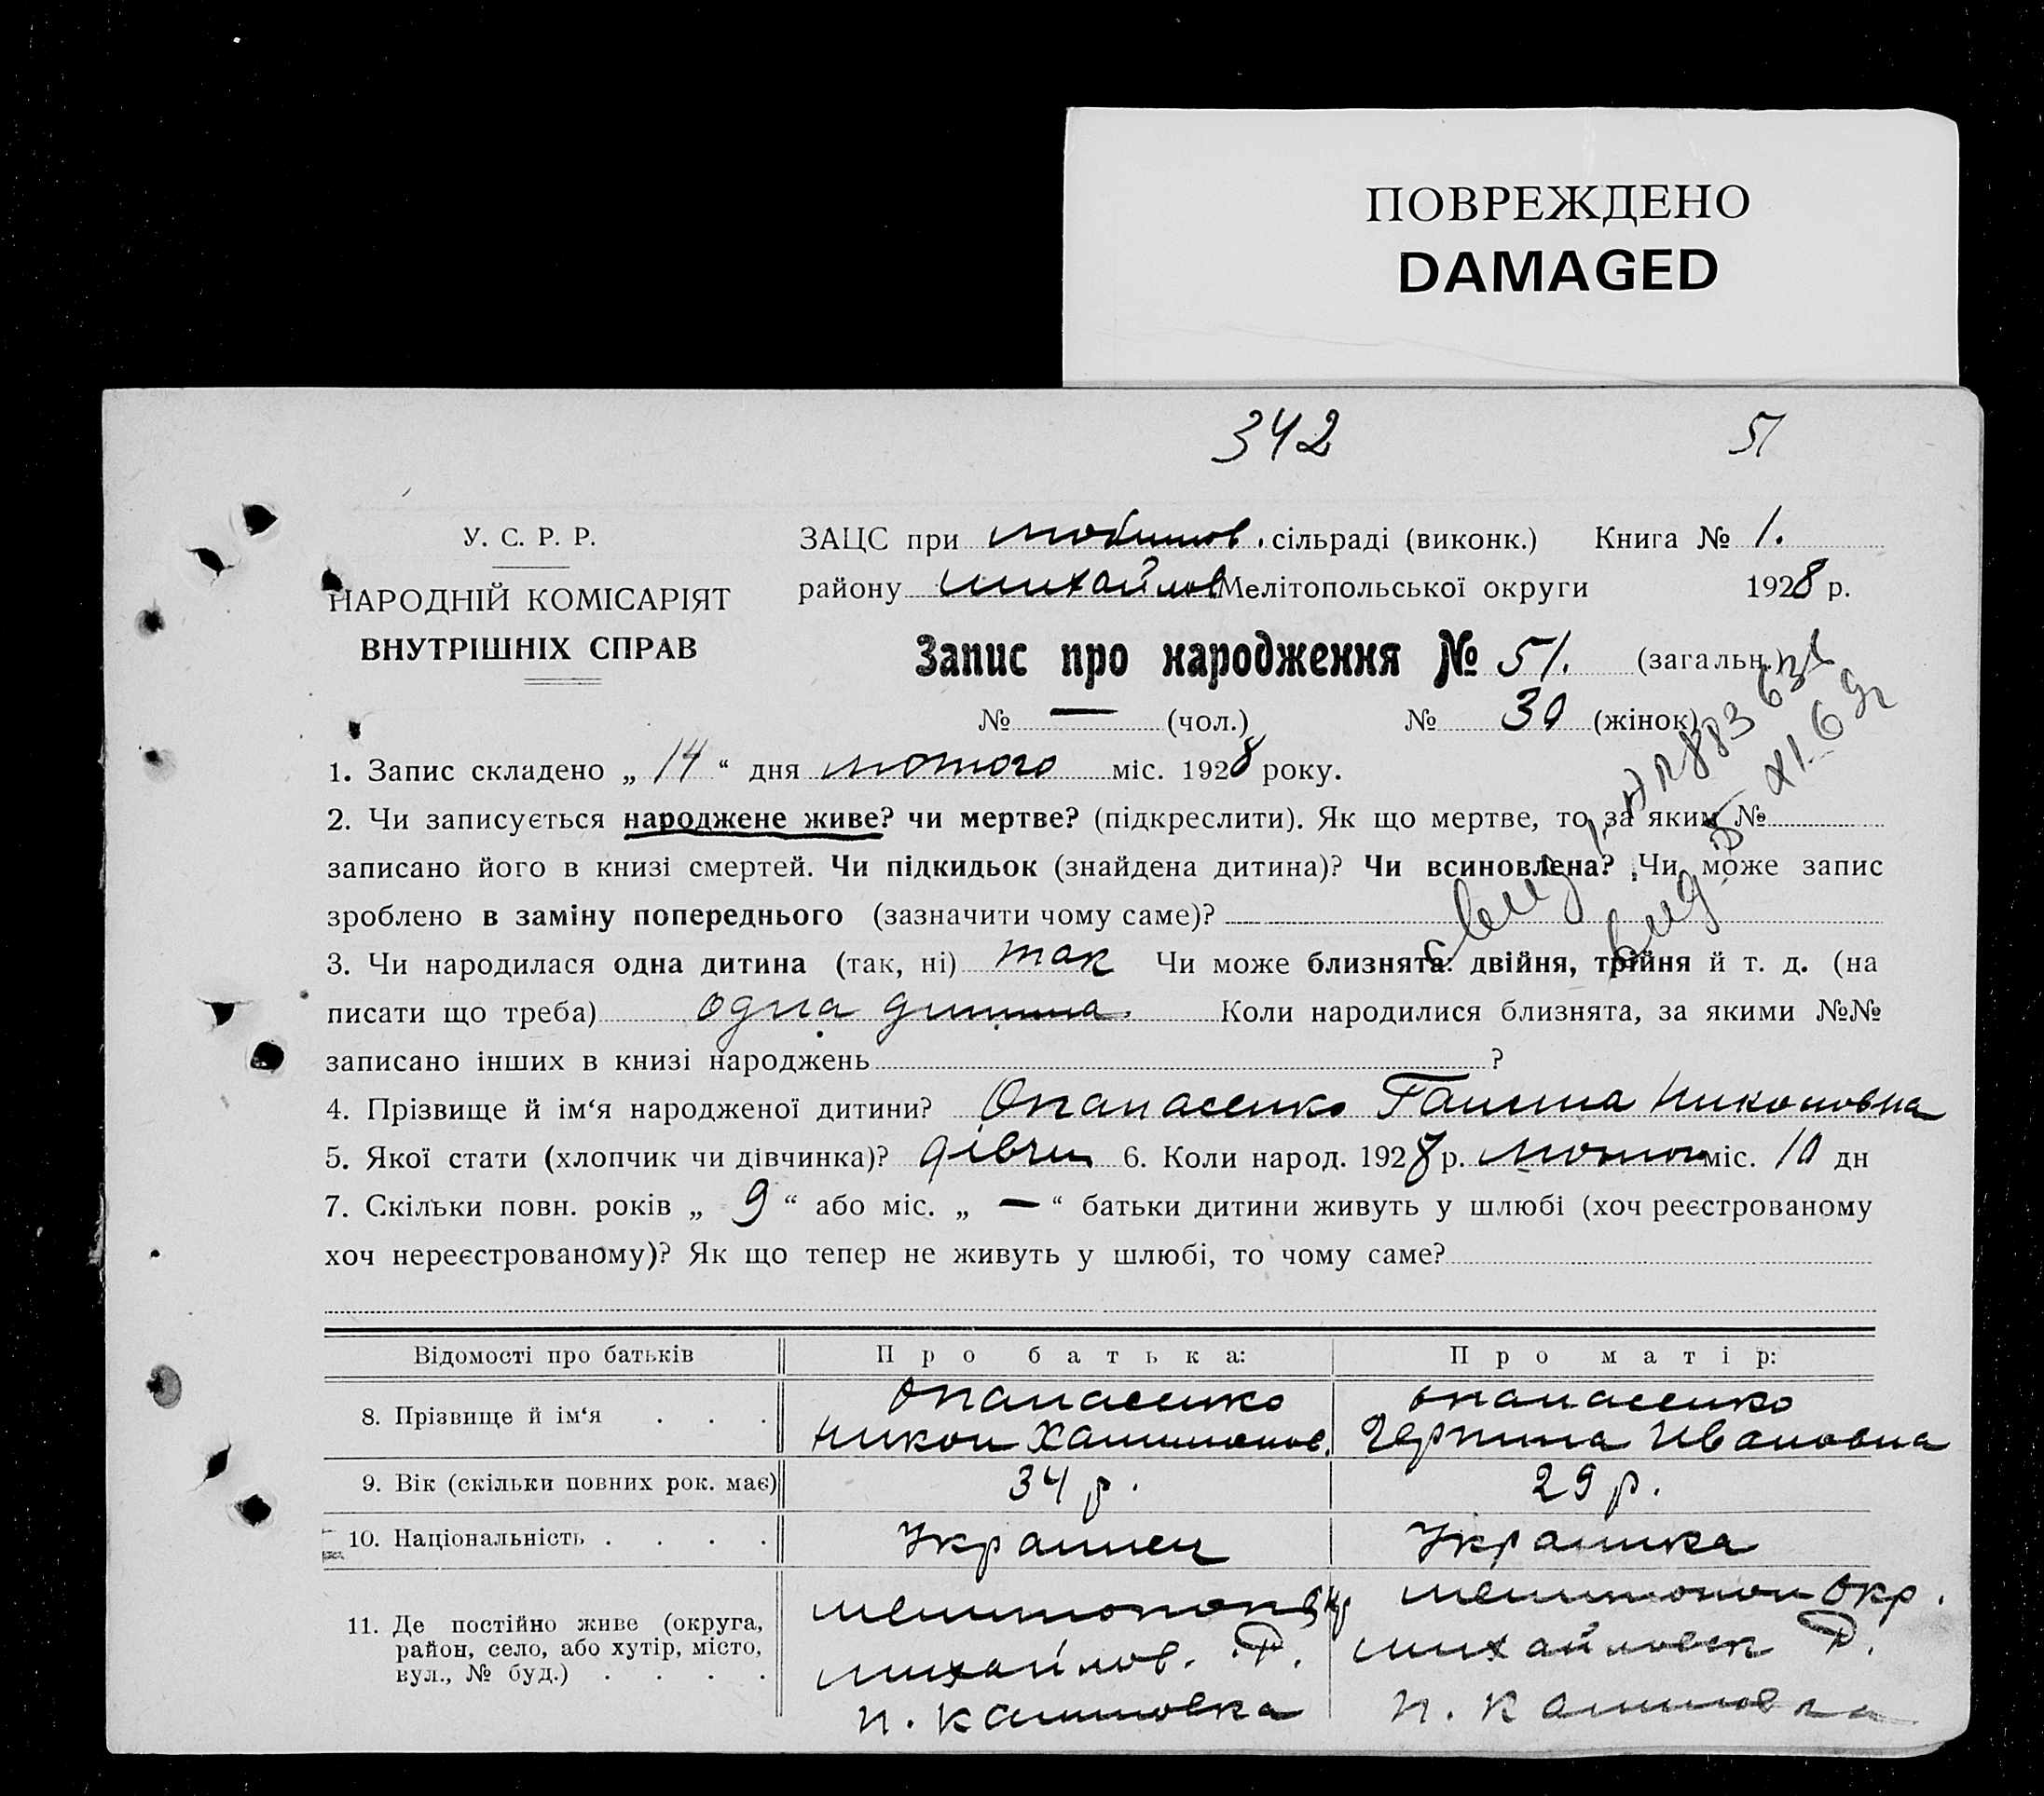 ПОВРЕЖДЕНО
DAMAGED
342 51
У. С. Р. Р.
НАРОДНІЙ КОМІСАРІЯТ
ВНУТРІШНІХ СПРАВ
ЗАЦС при Любимов. сільраді (виконк.) Книга № 1.
району Михайлов Мелітопольської округи 1928 р.
Запис про народження № 51. (загальн.)
№ — (чол.) № 30 (жінок)
1. Запис складено „ 14 “ дня лютого міс. 1928 року.
2. Чи записується народжене живе? чи мертве? (підкреслити). Як що мертве, то за яким №
записано його в книзі смертей. Чи підкидьок (знайдена дитина)? Чи всиновлена? Чи може запис
зроблено в заміну попереднього (зазначити чому саме)?
3. Чи народилася одна дитина (так, ні) так Чи може близнята: двійня, трійня й т. д. (на
писати що треба) одна дитина. Коли народилися близнята, за якими №№
записано інших в книзі народжень ?
4. Прізвище й ім‘я народженої дитини? Опанасенко Галина Никоновна
5. Якої стати (хлопчик чи дівчинка)? дівчин 6. Коли народ. 1928 р. лютого міс. 10 дн
7. Скільки повн. років „ 9 “ або міс. „ — “ батьки дитини живуть у шлюбі (хоч реєстрованому
хоч нереєстрованому)? Як що тепер не живуть у шлюбі, то чому саме?
Відомості про батьків Про батька: Про матір:
8. Прізвище й ім‘я . . . Опанасенко Никон Опанасенко Ивановна
9. Вік (скільки повних рок. має) 34 р. 29 р.
10. Національність . . . . Украинец Украинка
11. Де постійно живе (округа, Мелитопол Мелитопол Окр.
район, село, або хутір, місто, Михайлов. Р. Михайловск Р.
вул., № буд.) . . . .